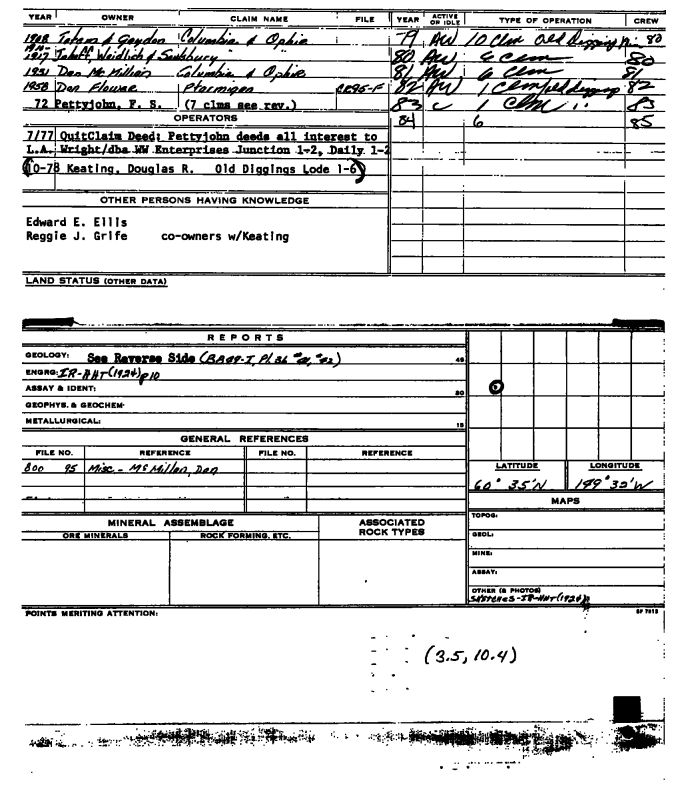 YEAR OWNER CLAIM NAME FILE YEAR ACTIVE OR IDLE TYPE OF OPERATION CREW
1908 & Gaydon Columbia & Ophir 79 AW 10 Clm Old Digging 80
1917 Weidlich & 80 AW 6 Clm 80
1931 Dan McMillan Columbia & Ophir 81 AW 6 Clm 81
1958 Don Ptarmigan 82 AW 1 Clm old digging 82
72 Pettyjohn, F. S. (7 clms see rev.) 83 C 1 Clm 83
OPERATORS 84 6 85
7/77 QuitClaim Deed: Pettyjohn deeds all interest to
L.A. Wright/dba WW Enterprises Junction 1-2, Daily 1-2
(10-78 Keating, Douglas R. Old Diggings Lode 1-6)
OTHER PERSONS HAVING KNOWLEDGE
Edward E. Ellis
Reggie J. Grife co-owners w/Keating
LAND STATUS (OTHER DATA)
REPORTS
GEOLOGY: See Reverse Side 45
ENGRG: IR-AHT(1924) p10
ASSAY & IDENT: 30
GEOPHYS. & GEOCHEM.
METALLURGICAL: 15
GENERAL REFERENCES
FILE NO. REFERENCE FILE NO. REFERENCE LATITUDE LONGITUDE
800 95 Misc - McMillan, Dan 60° 35'N 149° 32'W
MAPS
TOPOG:
MINERAL ASSEMBLAGE ASSOCIATED ROCK TYPES
ORE MINERALS ROCK FORMING, ETC. GEOL:
MINE:
ASSAY:
OTHER (& PHOTOS)
SKETCHES-IR-AHT(1924)
POINTS MERITING ATTENTION:
(3.5, 10.4)